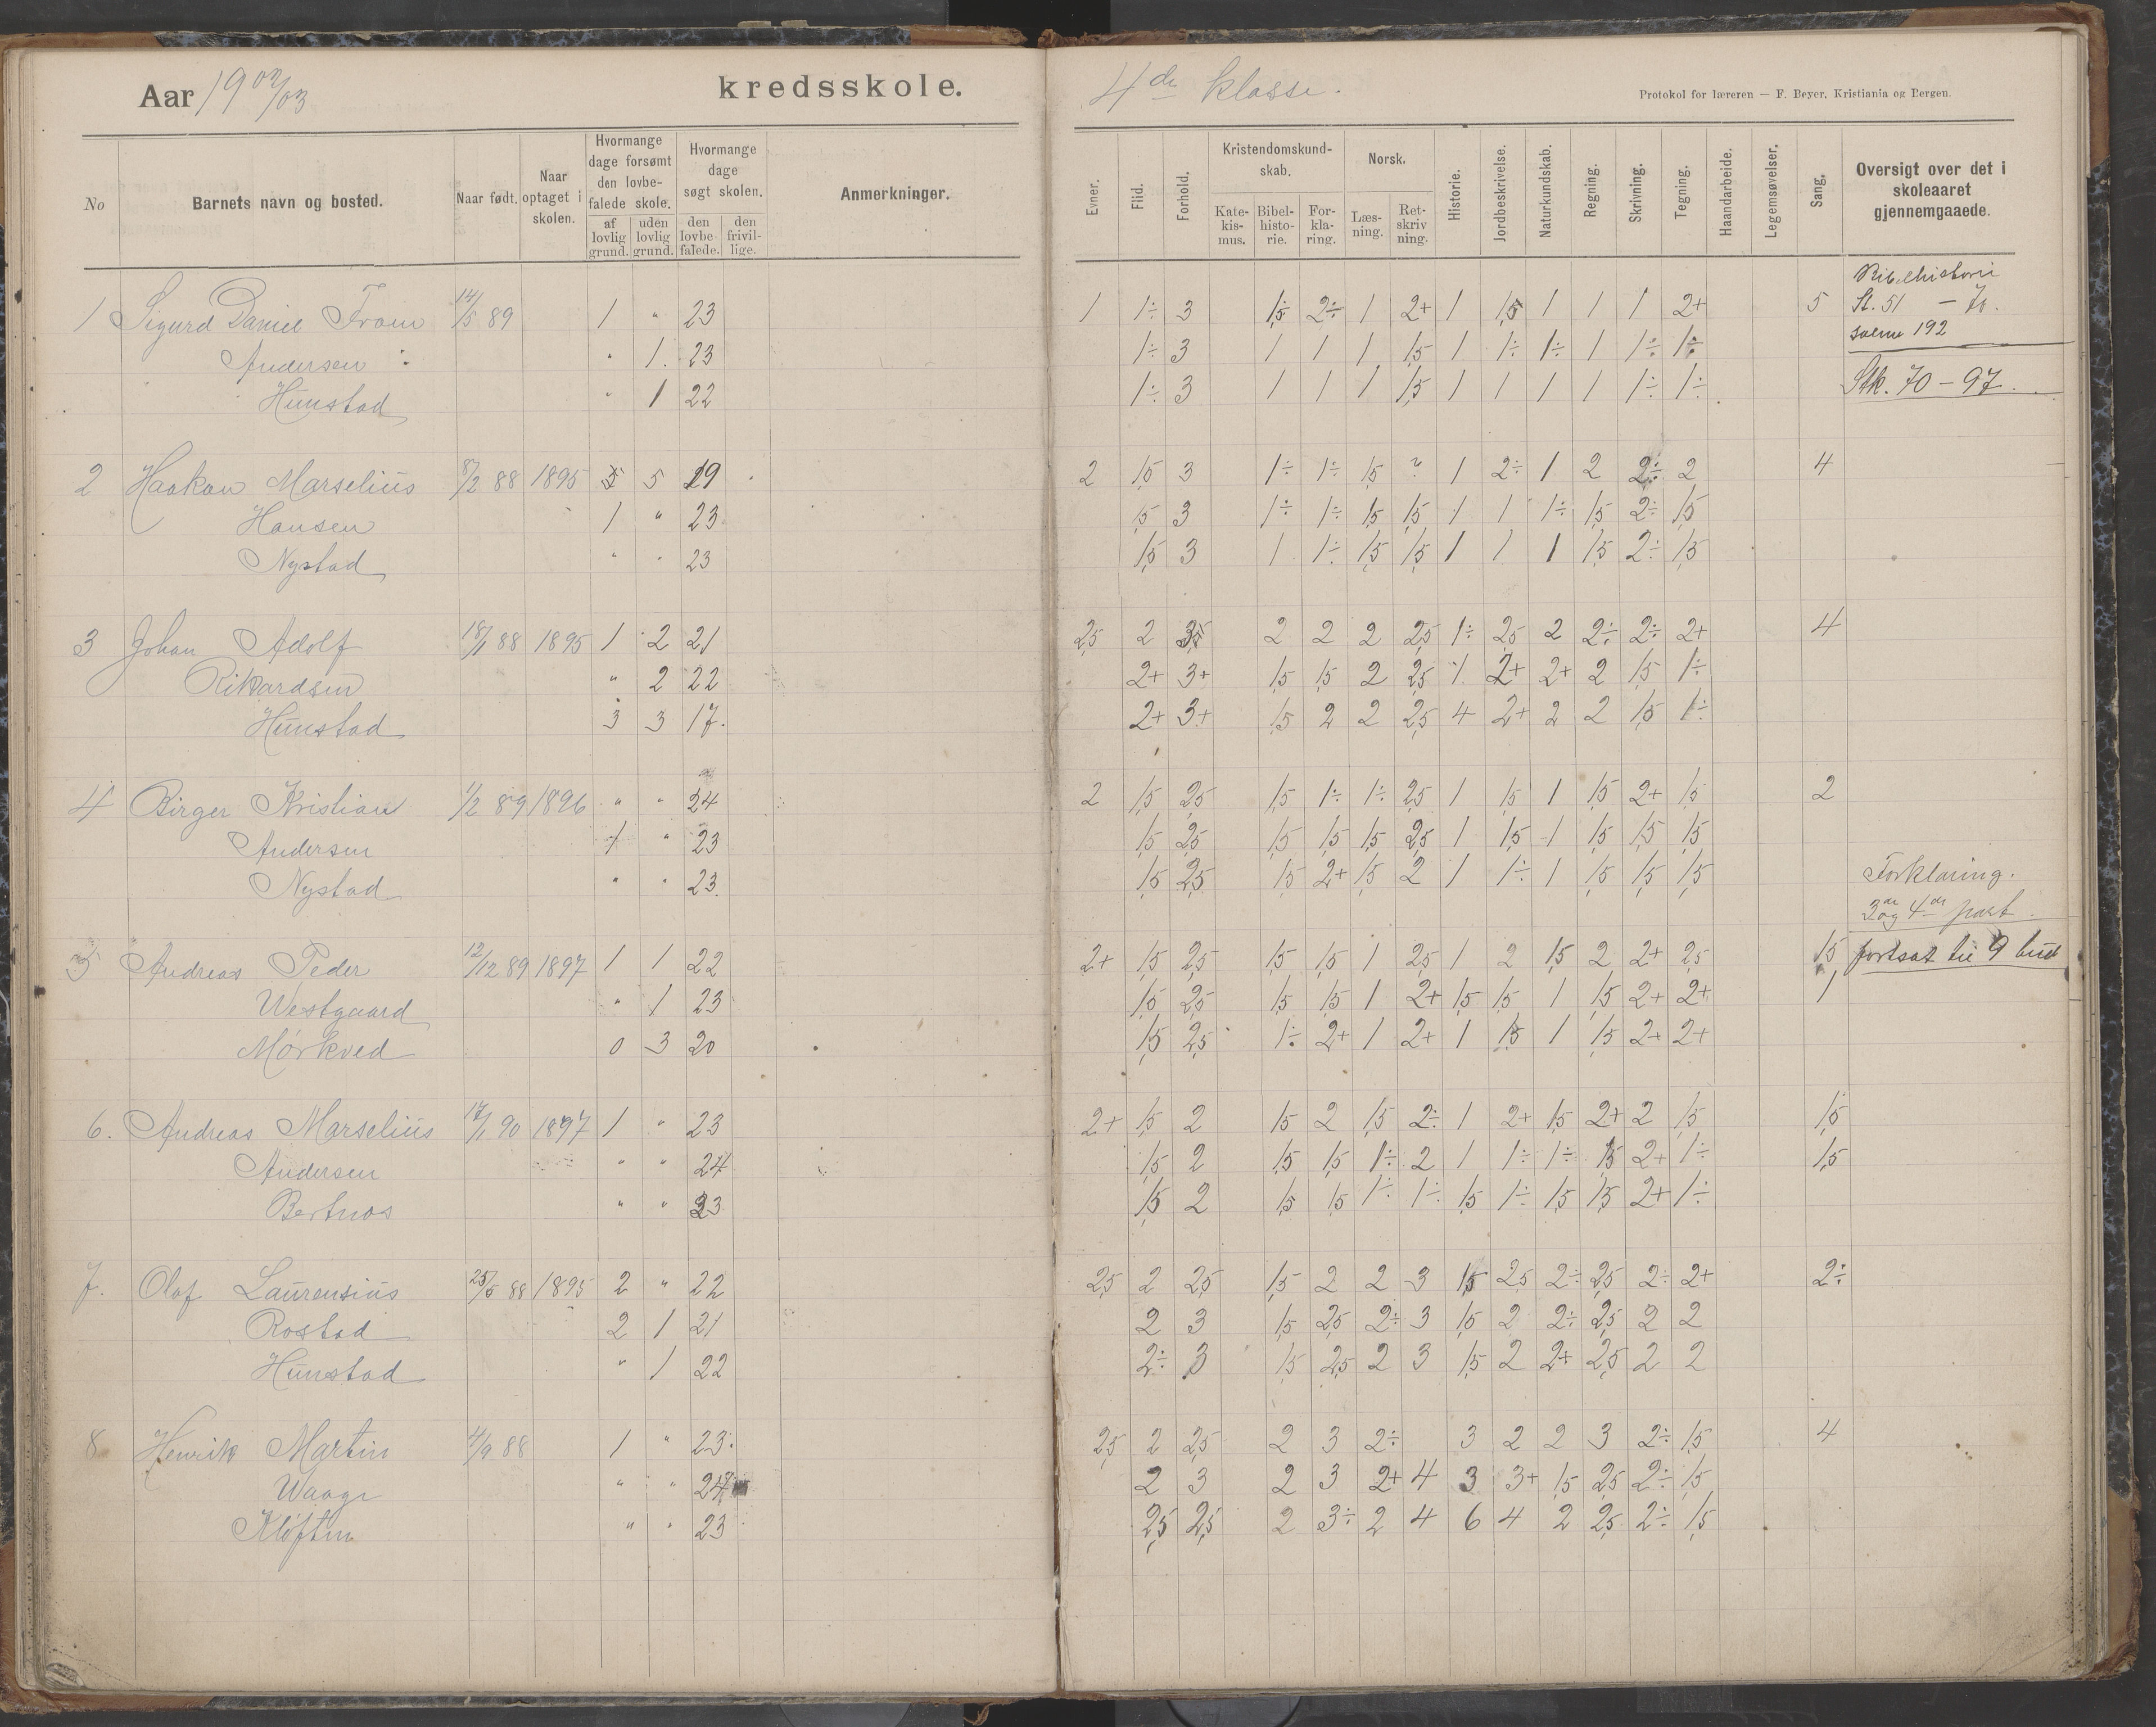 Aar 1902/03 kredsskole. 4de klasse.
Protokol for læreren — F. Beyer, Kristiania og Bergen.
No Barnets navn og bosted. Naar født. Naar optaget i skolen. Hvormange dage forsømt den lovbefalede skole. af lovlig grund. uden lovlig grund. Hvormange dage søgt skolen. den lovbefalede. den frivillige. Anmerkninger.
Evner. Flid. Forhold. Kristendomskundskab. Katekismus. Bibelhistorie. Forklaring. Norsk. Læsning. Retskrivning. Historie. Jordbeskrivelse. Naturkundskab. Regning. Skrivning. Tegning. Haandarbeide. Legemsøvelser. Sang. Oversigt over det i skoleaaret gjennemgaaede.
1 Sigurd Daniel Fram 14/5 89 1 " 23 1 1÷ 3 1,5 2÷ 1 2+ 1 1,5 1 1 1 2+ 5 Bibelhistorie St. 51 – 70. salme 192
Andersen " 1. 23 1÷ 3 1 1 1 1,5 1 1÷ 1÷ 1 1÷ 1÷
Hunstad " 1 22 1÷ 3 1 1 1 1,5 1 1 1 1 1÷ 1÷ Stk. 70 – 97.
2 Haakon Marselius 8/2 88 1895 5 5 19 2 1,5 3 1÷ 1÷ 1,5 ? 1 2÷ 1 2 2÷ 2 4
Hansen 1 " 23 1,5 3 1÷ 1÷ 1,5 1,5 1 1 1÷ 1,5 2÷ 1,5
Nystad " " 23 1,5 3 1 1÷ 1,5 1,5 1 1 1 1,5 2÷ 1,5
3 Johan Adolf 18/1 88 1895 1 2 21 2,5 2 3,5 2 2 2 2,5 1÷ 2,5 2 2÷ 2÷ 2+ 4
Rikardsen " 2 22 2+ 3+ 1,5 1,5 2 2,5 1 2+ 2+ 2 1,5 1÷
Hunstad 3 3 17. 2+ 3+ 1,5 2 2 2,5 4 2+ 2 2 1,5 1÷
4 Birger Kristian 1/2 89 1896 " " 24 2 1,5 2,5 1,5 1÷ 1÷ 2,5 1 1,5 1 1,5 2+ 1,5 2
Andersen 1 " 23 1,5 2,5 1,5 1,5 1,5 2,5 1 1,5 1 1,5 1,5 1,5
Nystad " " 23. 1,5 2,5 1,5 2+ 1,5 2 1 1÷ 1 1,5 1,5 1,5 Forklaring.
3de og 4de part.
5 Andreas Peder 12/12 89 1897 1 1 22 2+ 1,5 2,5 1,5 1,5 1 2,5 1 2 1,5 2 2+ 2,5 1,5 fortsat til 9 bud
Westgaard " 1 23 1,5 2,5 1,5 1,5 1 2+ 1,5 1,5 1 1,5 2+ 2+ 1
Mørkved 0 3 20 1,5 2,5 1÷ 2+ 1 2+ 1 1,5 1 1,5 2+ 2+
6. Andreas Marselius 17/1 90 1897 1 " 23 2+ 1,5 2 1,5 2 1,5 2÷ 1 2+ 1,5 2+ 2 1,5 1,5
Andersen " " 24 1,5 2 1,5 1,5 1÷ 2 1 1÷ 1÷ 1,5 2+ 1÷ 1,5
Bertnes " " 23 1,5 2 1,5 1,5 1÷ 1÷ 1,5 1÷ 1,5 1,5 2+ 1÷
7. Olaf Laurensius 25/5 88 1895 2 " 22 2,5 2 2,5 1,5 2 2 3 1,5 2,5 2÷ 2,5 2÷ 2+ 2÷
Rostad 2 1 21 2 3 1,5 2,5 2÷ 3 1,5 2 2÷ 2,5 2 2
Hunstad " 1 22 2÷ 3 1,5 2,5 2 3 1,5 2 2+ 2,5 2 2
8 Henrik Martin 4/9 88 1 " 23 2,5 2 2,5 2 3 2÷ 3 2 2 3 2÷ 1,5 4
Waage " " 24 2 3 2 3 2+ 4 3 3+ 1,5 2,5 2÷ 1,5
Kløften " " 23 2,5 2,5 2 3÷ 2 4 6 4 2 2,5 2÷ 1,5